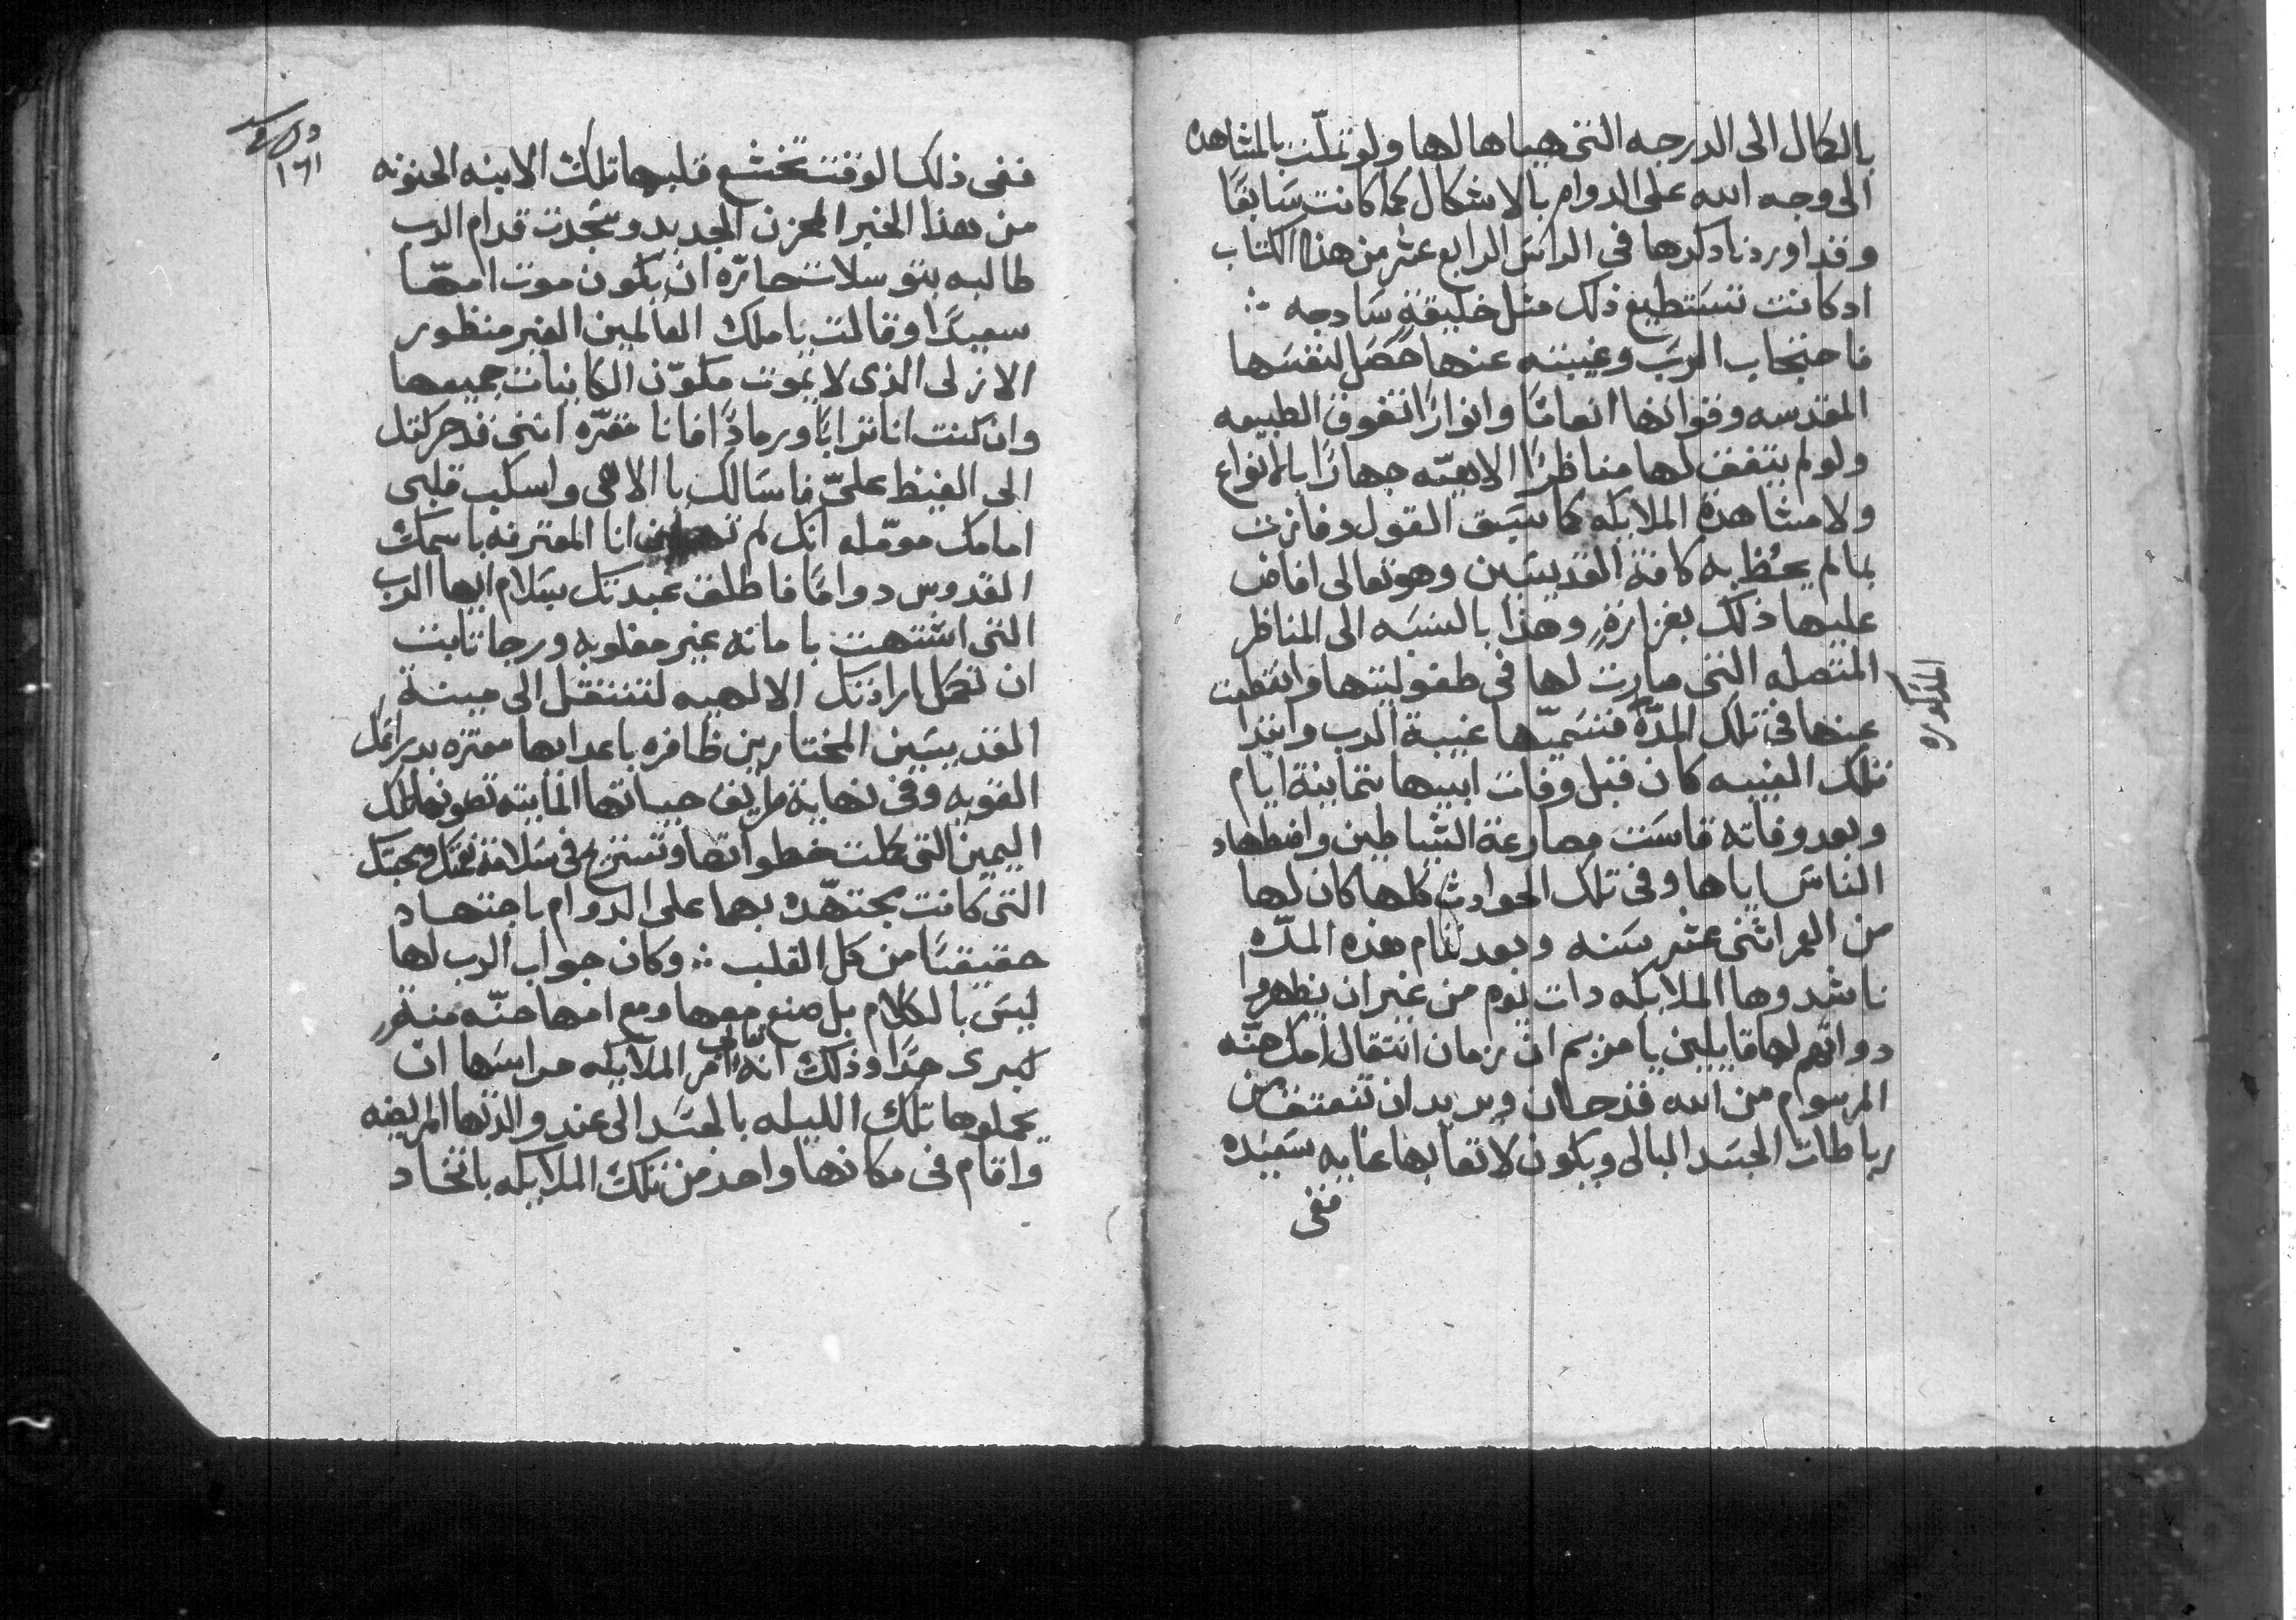 بالكمال الى الدرجه التي هياها لها ولو تملّت بالمشاهده
الى وجه الله على الدوام بالاشكال كما كانت سَابقًا
وقد اوردنا دكرها في الراسَ الرابع عشر من هذا الكتاب
اد كانت تسَتطيع ذلك مثل خليقةٍ سَادجه ∴
فاحتجاب الربَ وغيبته عنها حَصَل لنفسَها
المقدسه وقواتها انعامًا وانوارًا تفوق الطبيعه
ولو لم يتفق لها مناظرًا الاهيّه جهارًا بالانواع
ولا مشاهدة الملايكه كما سَبَق القول وفازت
بما لم يحُظ به كافة القديسَين وهو تعالى افاض
عليها ذلك بغزارةٍ وهذا بالنسَبه الى المناظر
المتصله التي صارت لها في طفوليتها وانقطعت
عنها في تلك المدّه فنسَميّها غيبة الرب وابتدا
المذكوره
تلك الغيبه كان قبل وفات ابيها بثمانية ايام
وبعد وفاته قاسَت مصارعة الشياطين واضطهاد
الناسَ اياها وفي تلك الحوادث كلها كان لها
من العمر اثني عشر سَنه وبعد تمام هذه المدّه
ناشدوها الملايكه دات يوم من غير ان يظهروا
دواتهم لها قايلين يا مريم ان زمان انتقال امك حنّه
المرسوم من الله قد حان ويريد ان تنعتق من
رباطات الجسَد البالي ويكون لاتعابها غايه سَعيده
ففي
١٦١
ففي ذلك الوقت تخشع قلبها تلك الابنه الحنونه
من هذا الخبر المحزن الجديد وسَجدت قدام الرب
طالبه بتوسلات حارّه ان يكون موت امهّا
سعيدًا وقالت يا ملك العالمين الغير منظور
الازلي الذي لا يموت مكوّن الكاينات جميعها
وان كنت انا ترابًا ورمادًا فانا مقرّه انني قد حركتك
الى الغيظ عليّ فاسَالك يا الاهي واسكب قلبي
امامك مومّله انك لم انا المعترفه باسَمك
القدوس دوامًا فاطلق عبدتك بسَلام ايها الرب
التي اشتهت بامانه غير مغلوبه ورجا تابت
ان تكمل ارادتك الالهيه لتنتقل الى مينة
القديسَين المختارين ظافره باعداها معتزه بدراعك
القويه وفي نهاية طريق حياتها المايته تعونها تلك
اليمين التي كملت خطواتها وتستريح في سَلامة نعمتك ومحبتك
التي كانت مجتهّده بهما على الدوام باجتهاد
حقيقيًا من كل القلب ∴ وكان جواب الرب لها
ليسَ بالكلام بل صنع معها ومع امها حنّه منةٍ
كبرى جدًا وذلك انه تعالى امر الملايكه حراسَها ان
يحملوها تلك الليله بالجسَد الى عند والدتها المريضه
واقام في مكانها واحد من تلك الملايكه باتخاد